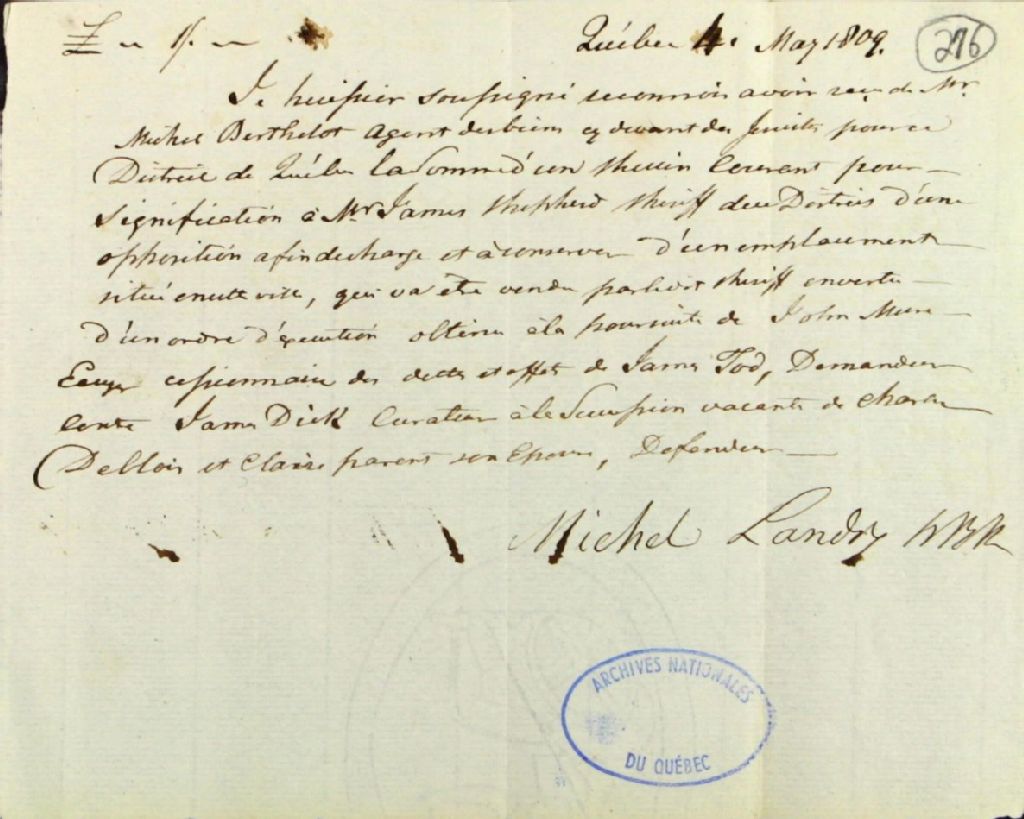 £ " 1/. "
Québec 4. May 1809.
276
Je huissier soussigné reconnois avoir reçu de Mr.
Michel Berthelot Agent des biens cy devant des Jesuites pour ce
District de Québec la Somme d'un Shelin Courant pour
Signification à Mr James Shepherd Sheriff du District d'une
opposition afin de charge et à conserver d'un emplacement
situé en cette ville, qui va être vendu par ledit Sheriff en vertu
d'un ordre d'execution obtenu à la poursuite de John Mure
Ecuyr cessionnaire des dettes et effets de James Tod, Demandeur
contre James Dick Curateur à la Succession vacante de Charles
Deblois et Claire parent son Epouse, Defendeur
Michel Landry HBR
ARCHIVES NATIONALES
DU QUÉBEC